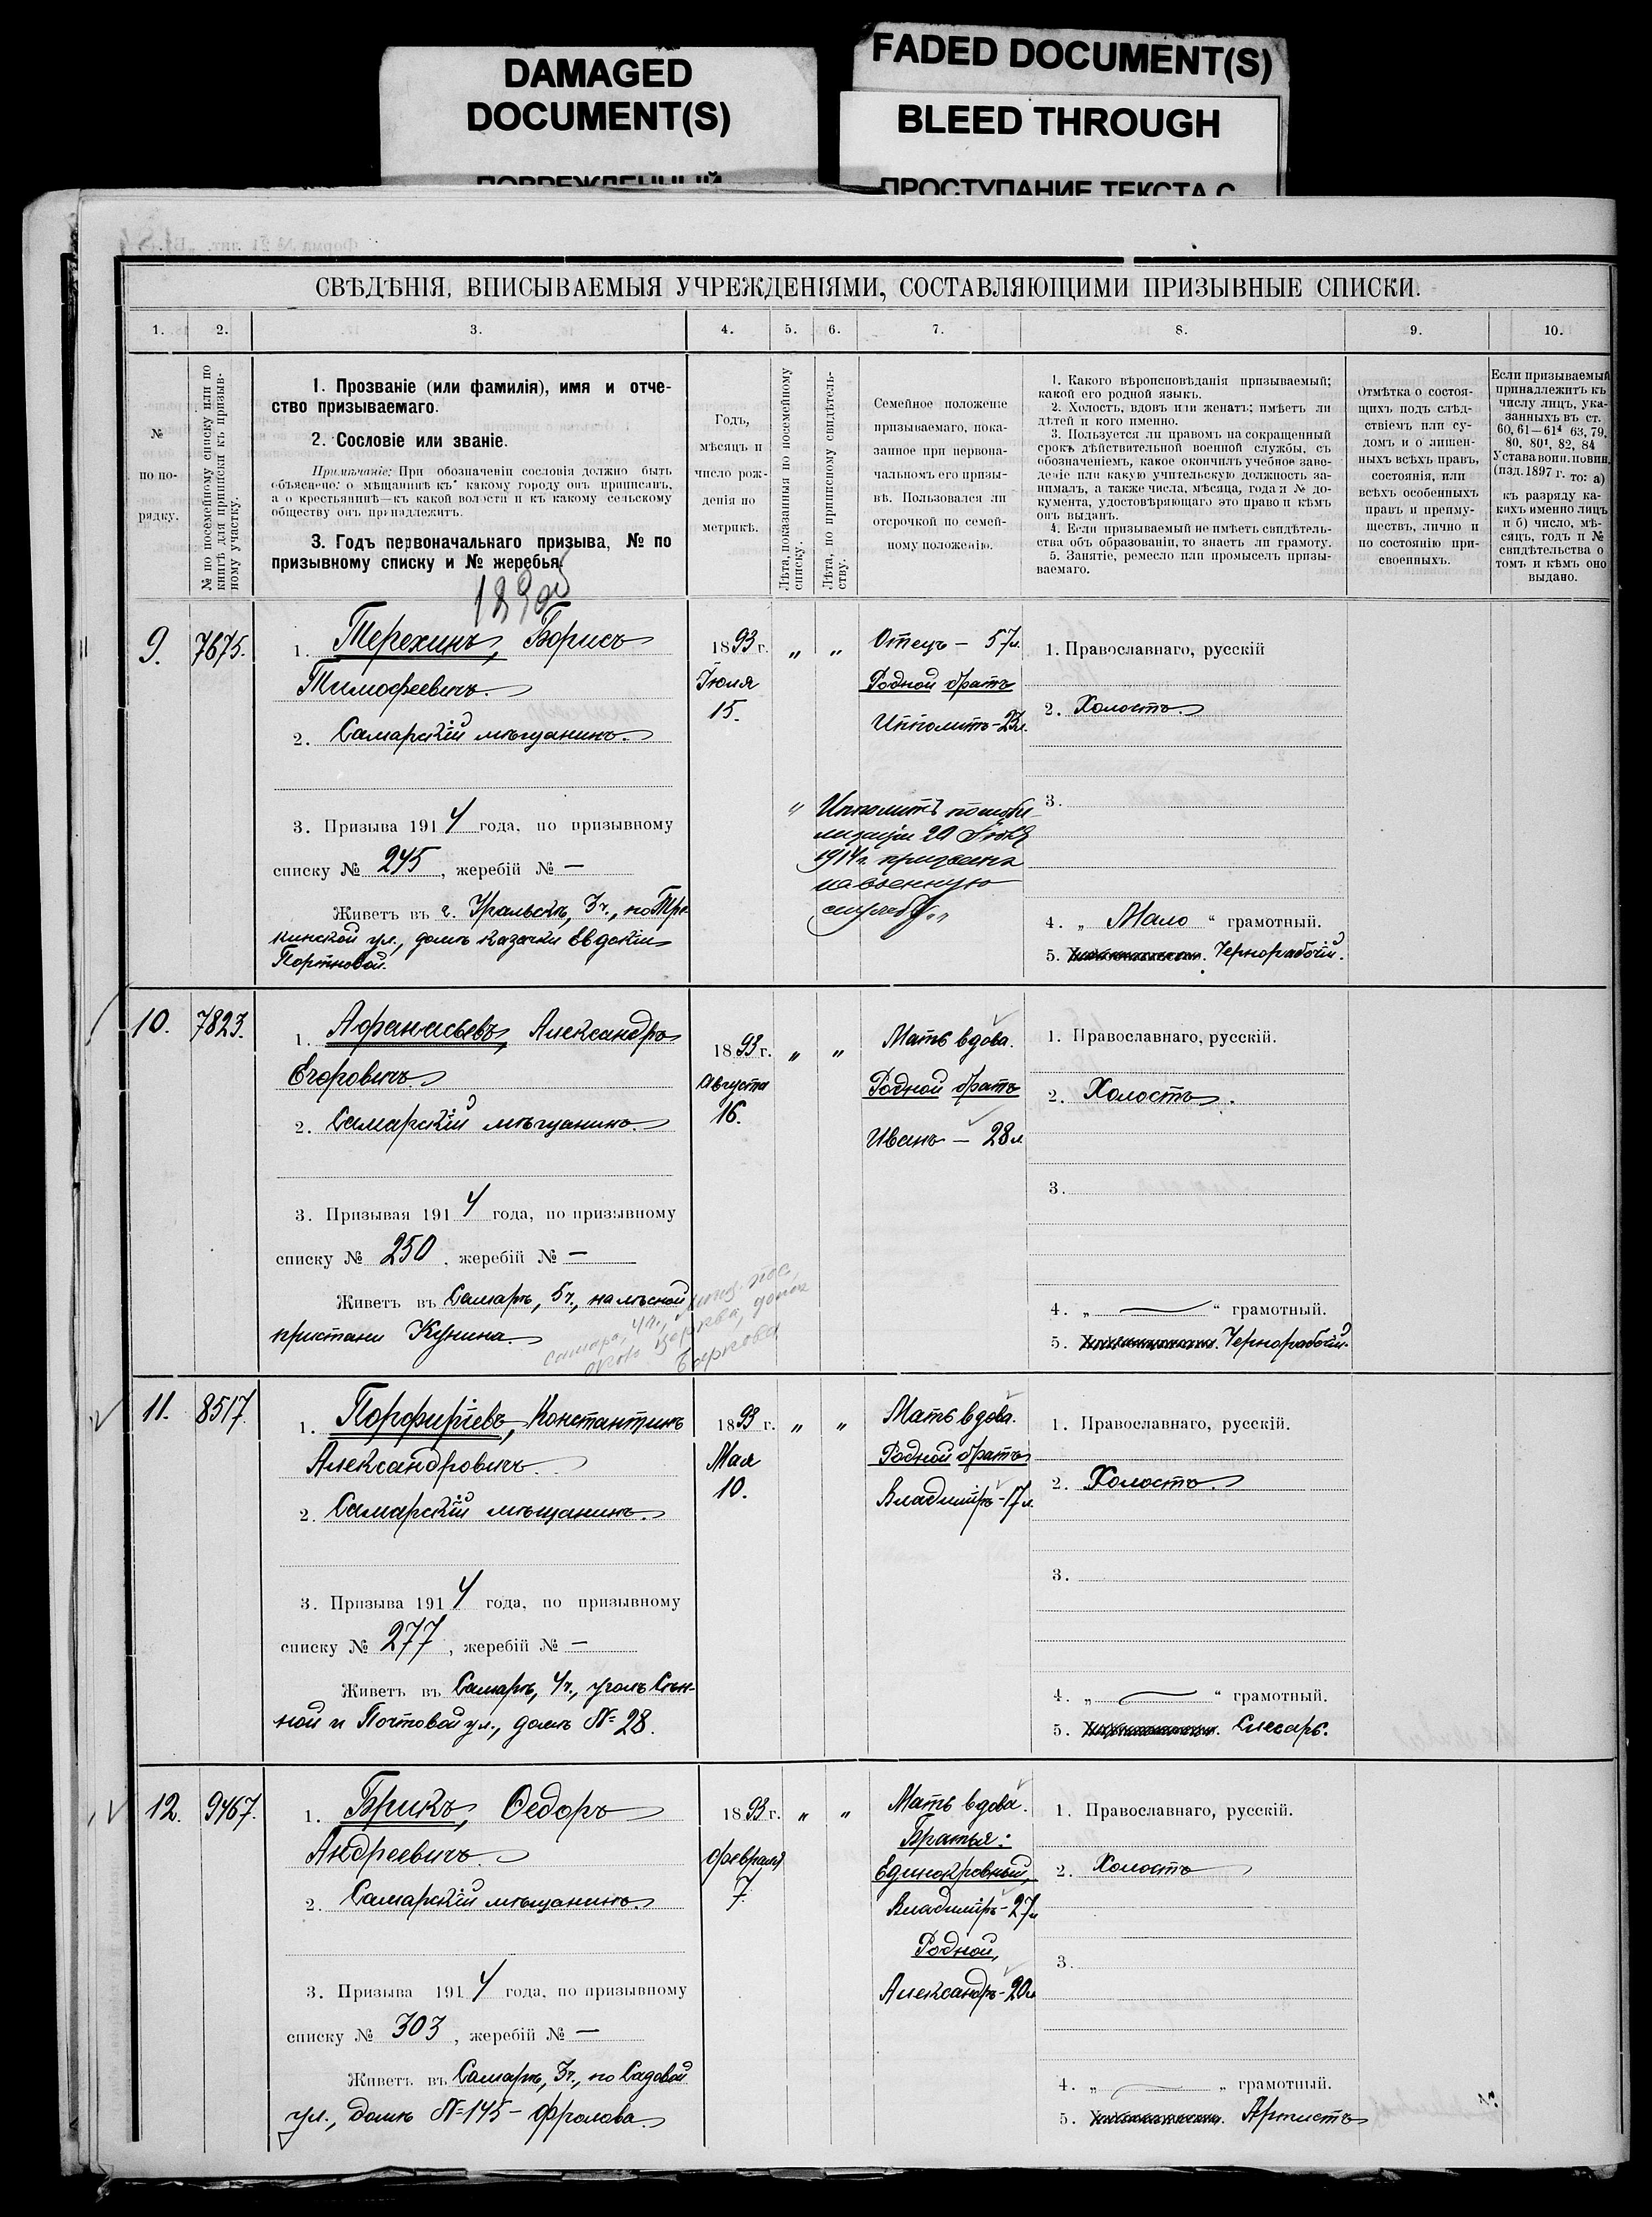 DAMAGED
DOCUMENT(S)
ПОВРЕЖДЕННЫЙ
FADED DOCUMENT(S)
BLEED THROUGH
ПРОСТУПАНИЕ ТЕКСТА С
СВѢДѢНІЯ, ВПИСЫВАЕМЫЯ УЧРЕЖДЕНІЯМИ, СОСТАВЛЯЮЩИМИ ПРИЗЫВНЫЕ СПИСКИ.
1. 2. 3. 4. 5. 6. 7. 8. 9. 10.
№
по по-
рядку.
№ по посемейному списку или по
книгѣ для приписки къ призыв-
ному участку.
1. Прозваніе (или фамилія), имя и отче-
ство призываемаго.
2. Сословіе или званіе.
Примѣчаніе: При обозначеніи сословія должно быть
объяснено: о мѣщанинѣ къ какому городу онъ приписанъ,
а о крестьянинѣ—къ какой волости и къ какому сельскому
обществу онъ принадлежитъ.
3. Годъ первоначальнаго призыва, № по
призывному списку и № жеребья.
Годъ,
мѣсяцъ и
число рож-
денія по
метрикѣ.
Лѣта, показанныя по посемейному
списку.
Лѣта, по приписному свидѣтель-
ству.
Семейное положеніе
призываемаго, пока-
занное при первона-
чальномъ его призы-
вѣ. Пользовался ли
отсрочкой по семей-
ному положенію.
1. Какого вѣроисповѣданія призываемый;
какой его родной языкъ.
2. Холостъ, вдовъ или женатъ; имѣетъ ли
дѣтей и кого именно.
3. Пользуется ли правомъ на сокращенный
срокъ дѣйствительной военной службы, съ
обозначеніемъ, какое окончилъ учебное заве-
деніе или какую учительскую должность за-
нималъ, а также числа, мѣсяца, года и № до-
кумента, удостовѣряющаго это право и кѣмъ
онъ выданъ.
4. Если призываемый не имѣетъ свидѣтель-
ства объ образованіи, то знаетъ ли грамоту.
5. Занятіе, ремесло или промыселъ призы-
ваемаго.
Отмѣтка о состоя-
щихъ подъ слѣд-
ствіемъ или су-
домъ и о лишен-
ныхъ всѣхъ правъ,
состоянія, или
всѣхъ особенныхъ
правъ и преиму-
ществъ, лично и
по состоянію при-
своенныхъ.
Если призываемый
принадлежитъ къ
числу лицъ, ука-
занныхъ въ ст.
60, 61—61⁴ 63, 79,
80, 80¹, 82, 84
Устава воин. повин.
(изд. 1897 г. то: а)
къ разряду ка-
кихъ именно лицъ
и б) число, мѣ-
сяцъ, годъ и №
свидѣтельства о
томъ и кѣмъ оно
выдано.
9. 7675. 1. Терехинъ, Борисъ
Тимофеевичъ.
2. Самарскій мѣщанинъ.
3. Призыва 1914 года, по призывному
списку № 245, жеребій № —
Живетъ въ г. Уральскѣ, 3 ч.,
кинской ул., домъ казачки Евдокіи
Портновой.
1893 г. „ „
Іюля
15.
Отецъ — 57 л.
Родной братъ
Ипполитъ — 23 л.
Ипполитъ по моби-
лизаціи 20 Іюля
1914 г. призванъ
на военную
службу.
1. Православнаго, русскій
2. Холостъ
3.
4. „ Мало “ грамотный.
5. Чернорабочій.
10. 7823. 1. Афанасьевъ, Александръ
Егоровичъ.
2. Самарскій мѣщанинъ.
3. Призывая 1914 года, по призывному
списку № 250, жеребій № —
Живетъ въ Самарѣ, 5 ч., на лѣсной
пристани Кунина.
Самара, 4 ч.,
1893 г. „ „
Августа
16.
Мать вдова.
Родной братъ
Иванъ — 28 л
1. Православнаго, русскій.
2. Холостъ.
3.
4. „ — “ грамотный.
5. Чернорабочій.
11. 8517. 1. Порфирьевъ, Константинъ
Александровичъ.
2. Самарскій мѣщанинъ.
3. Призыва 1914 года, по призывному
списку № 277, жеребій № —
Живетъ въ Самарѣ, 4 ч., уголъ Сѣн-
ной и Почтовой ул., домъ № 28.
1893 г. „ „
Мая
10.
Мать вдова.
Родной братъ
Владиміръ — 17 л.
1. Православнаго, русскій.
2. Холостъ.
3.
4. „ — “ грамотный.
5. Слесарь.
12. 9467. 1. Брикъ, Ѳедоръ
Андреевичъ.
2. Самарскій мѣщанинъ.
3. Призыва 1914 года, по призывному
списку № 303, жеребій № —
Живетъ въ Самарѣ, 3 ч., по Садовой
ул., домъ № 145 — Фролова.
1893 г. „ „
Февраля
7.
Мать вдова.
Братья:
Единокровный,
Владиміръ — 27 л
Родной,
Александръ — 20 л
1. Православнаго, русскій.
2. Холостъ
3.
4. „ — „ грамотный.
5. Артистъ